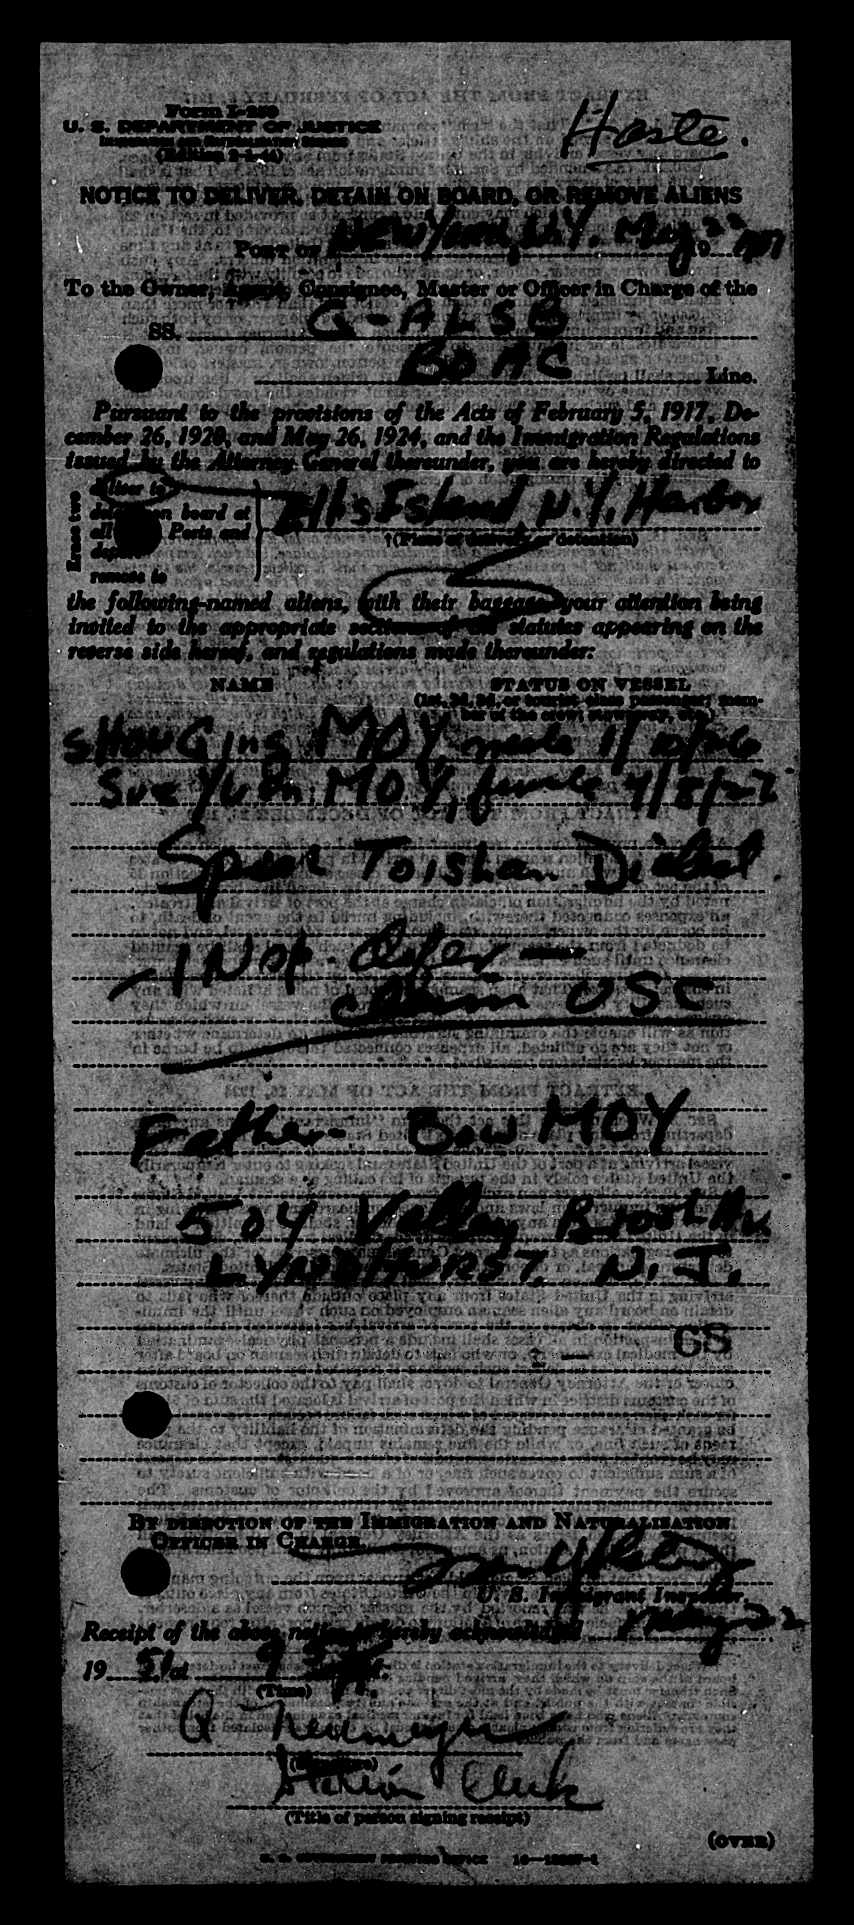 Form I-259
U. S. DEPARTMENT OF JUSTICE
Haste.
NOTICE TO DELIVER, DETAIN ON BOARD, OR REMOVE ALIENS
PORT OF NEW YORK, N.Y. May 22
To the Owner, Agent, Consignee, Master or Officer in Charge of the
SS. G-ALSB
BOAC Line.
Pursuant to the provisions of the Acts of February 5, 1917, De-
cember 26, 1920, and May 26, 1924, and the Immigration Regulations
issued by the Attorney General thereunder, you are hereby directed to
Erase two
deliver to
on board at
all Ports and
remove to
Ellis Island N.Y. Harbor
†(Place of delivery or detention)
the following-named aliens, with their baggage, your attention being
invited to the appropriate sections of the statutes appearing on the
reverse side hereof, and regulations made thereunder:
NAME STATUS ON VESSEL
SHOU Ging MOY male 1/10/26
Sue Yuen MOY, female 4/8/27
Speak Toishan Dialect.
INop. defer —
Claim OSC
Father - Bow MOY
504 Valley Brook Av.
LYNDHURST, N.J.
GS
BY DIRECTION OF THE IMMIGRATION AND NATURALIZATION
OFFICER IN CHARGE.
U. S. Immigrant Inspector.
Receipt of the above notice is hereby acknowledged May 22
19 51 at 9
(Time)
(Signature)
Station Clerk
(Title of person signing receipt)
(OVER)
U. S. GOVERNMENT PRINTING OFFICE